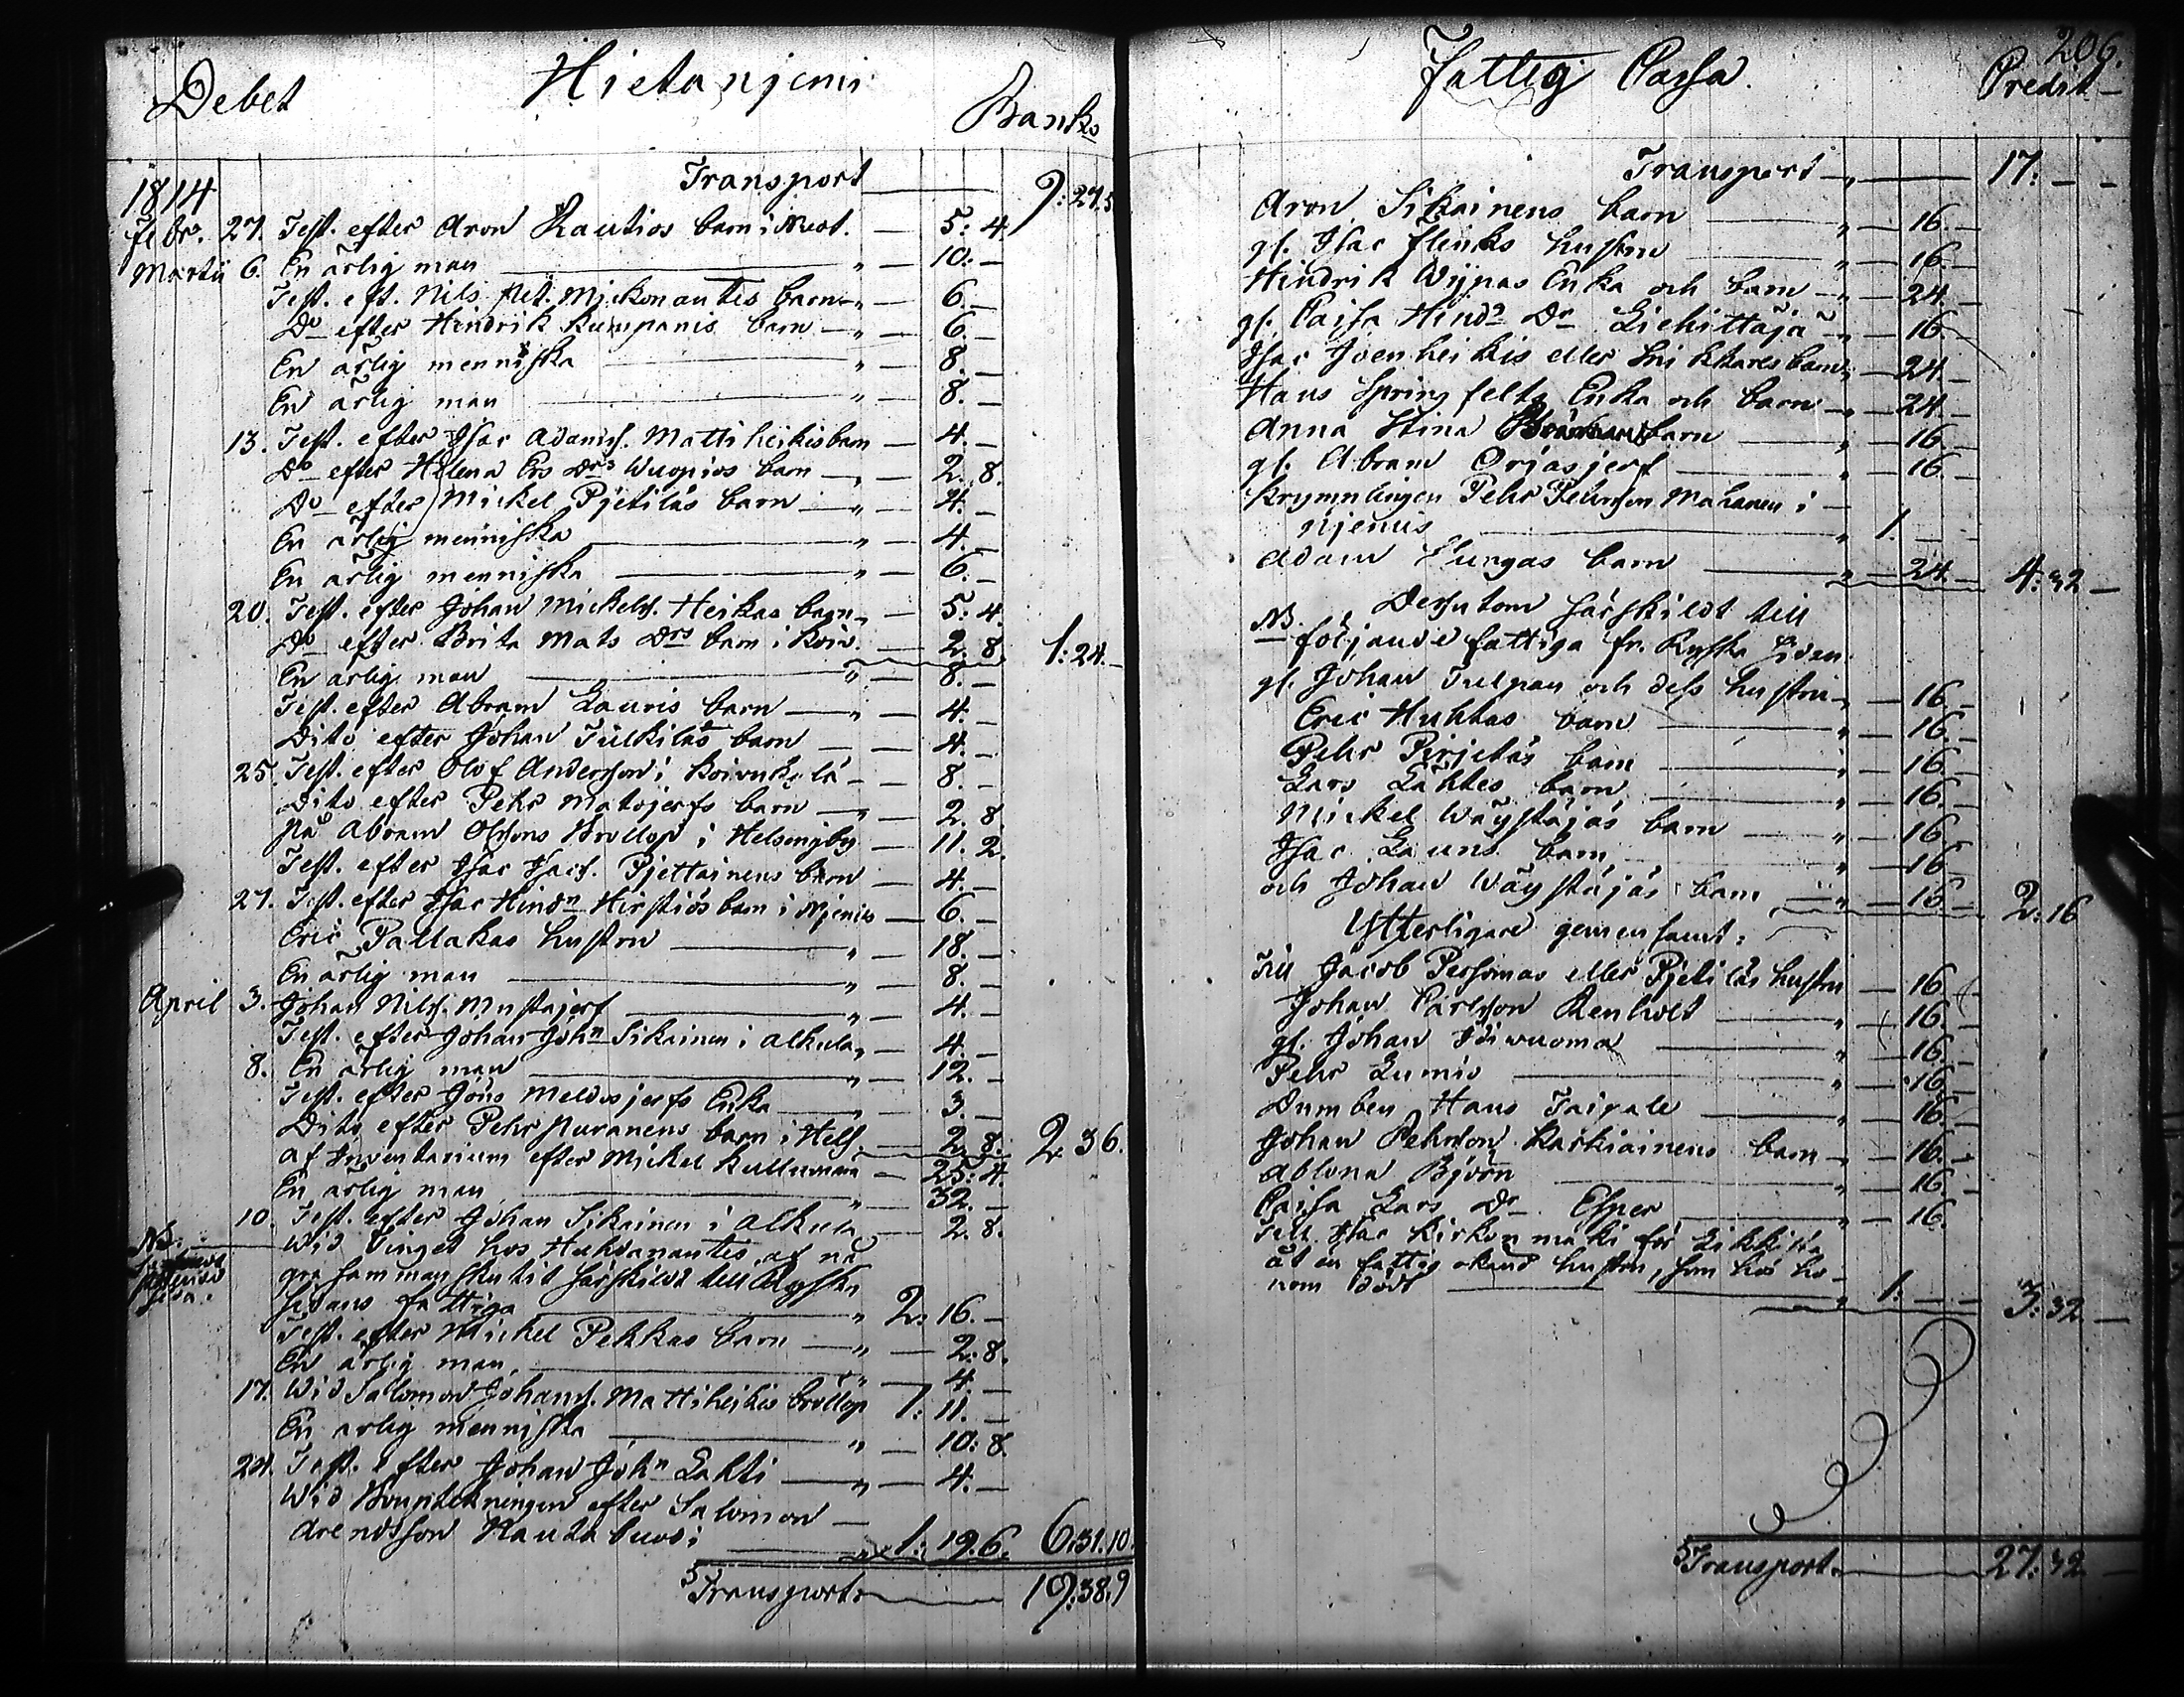 Debet Hietanjemi Banko
1814 Transport 9:27.5
Febr. 27. Test. efter Aron Rautios barn i Nuot. 5: 4
Martii 6. En ärlig man 10:
Test. eft. Nils Pet. Mickonanttis barn 6.
Do efter Hindrik Kumpanis barn 6.
En ärlig menniska 8.
En ärlig man 8.
13. Test. efter Isac Adamss. Mattiheikis barn 4.
Do efter Helena Ers Drs Wuopios barn 2. 8.
Do efter Mickel Pjetiläs barn 4.
En ärlig menniska 4.
En ärlig menniska 6.
20. Test. efter Johan Mickelss. Heikas barn 5: 4.
Do efter Brita Mats Drs barn i Koiv. 2. 8 1: 24.
En ärlig man 8.
Test. efter Abram Lauris barn 4.
Dito efter Johan Tulkilas barn 4.
25. Test. efter Olof Andersson i Koivukylä 8.
Dito efter Pehr Matojerfs barn 2. 8
På Abram Olssons Bröllop i Helsingby 11. 2.
Test. efter Isac Isacs. Pjettainens barn 4.
27. Test. efter Isac Hindn Hirstiös barn i Njemis 6.
Eric Pallakas hustru 18.
En ärlig man 8.
April 3. Johan Nilss. Mustajerf 4.
Test. efter Johan John Sikainen i Alkula 4.
8. En ärlig man 12.
Test. efter Jöns Meldosjerfs Enka 3.
Dito efter Pehr Puranens barn i Hels. 2. 8. 2. 36.
af Inventarium efter Mickel Kullunmaa 25: 4.
En ärlig man 32.
10. Test. efter Johan Sikainen i Alkula 2. 8.
NB. Wid Tinget hos Huhdananttis af nå
gra sammanskutit särskildt till Ryska
sidans fattiga 2: 16.
Test. efter Mickel Pekkas barn 2: 8.
En ärlig man 4.
17. Wid Salomon Johanss. Mattiheikis bröllop 1: 11.
En ärlig menniska 10: 8.
24. Test. efter Johan John Lahti 4.
Wid Bouptekningen efter Salomon
Arendsson Rautabuodi 1: 19. 6. 6:31.10
Transport 19:38.9
206.
Fattig Cassa. Credit
Transport 17:
Aron Sikainens barn 16.
gl. Isac Flinks hustru 16.
Hindrik Wijnas Enka och barn 24.
gl. Caisa Hinds Dr Liehittäjä 16.
Isac Juenheikis eller barn 24.
Hans Springfelts Enka och barn 24.
Anna Stina barn 16.
gl. Abram Orjasjerf 16.
Krymnlingen Pehr Pehrsson Mahanen i
Njemis 1.
Adam Pungas barn 24. 4:32
NB. Dessutom särskildt till
följande fattiga fr. Ryska Sidan
gl. Johan Tulpan och dess hustru 16.
Eric Huhtas barn 16.
Pehr Pirjetäs barn 16.
Lars Lahtes barn 16.
Mickel Wäystäjäs barn 16
Isac Launs barn 16
och Johan Wäystäjäs barn 16 2:16
Ytterligare gemensamt:
Till Jacob Persomas eller Pjetiläs hustru 16
Johan Carlsson Renholt 16.
gl. Johan 16.
Pehr Lumio 16
Dumben Hans Taipale 16.
Johan Pehrsson Karkiainens barn 16.
Ablona Björn 16.
Caisa Lars Dr Esner 16.
Till Isac Kirkonmäki för Likkista
åt en fattig okänd hustru, som hos ho-
nom dödt 1: 3:32
Transport 27:32